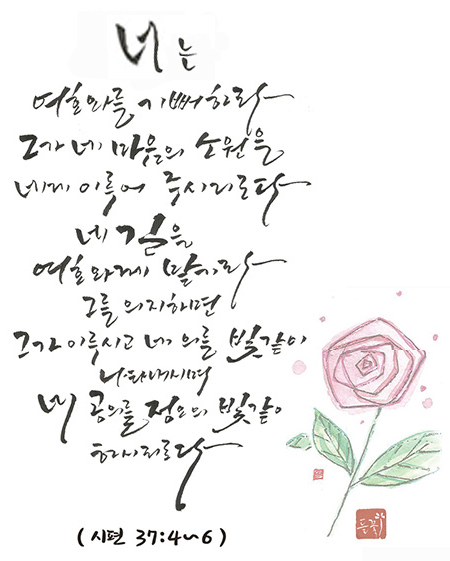 너는
여호와를 기뻐하라
그가 네 마음의 소원을
네게 이루어 주시리로다
네 길을
여호와께 맡기라
그를 의지하면
그가 이루시고 네 의를 빛같이
나타내시며
네 공의를 정오의 빛같이
하시리로다
(시편 37:4~6)
들꽃